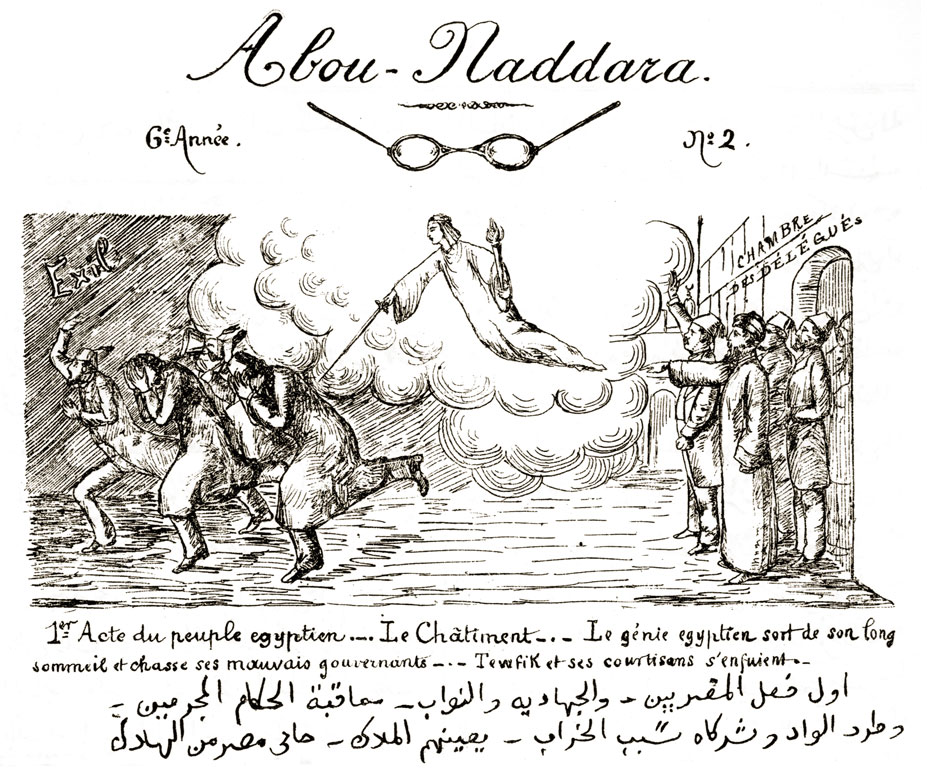 Abou-Naddara.
6e Année.
No 2.
Exil
CHAMBRE
DES DÉLÉGUÉS
1er Acte du peuple egyptien_._ Le Châtiment_._ Le génie egyptien sort de son long
sommeil et chasse ses mauvais gouvernants_._ Tewfik et ses courtisans s'enfuient._
اول فصل المصريين - والجهاديه والنواب - معاقبة الحكام المجرمين -
وطرد الواد وشركاه سبب الخراب - يعينهم الملاك - حامى مصر من الهلاك